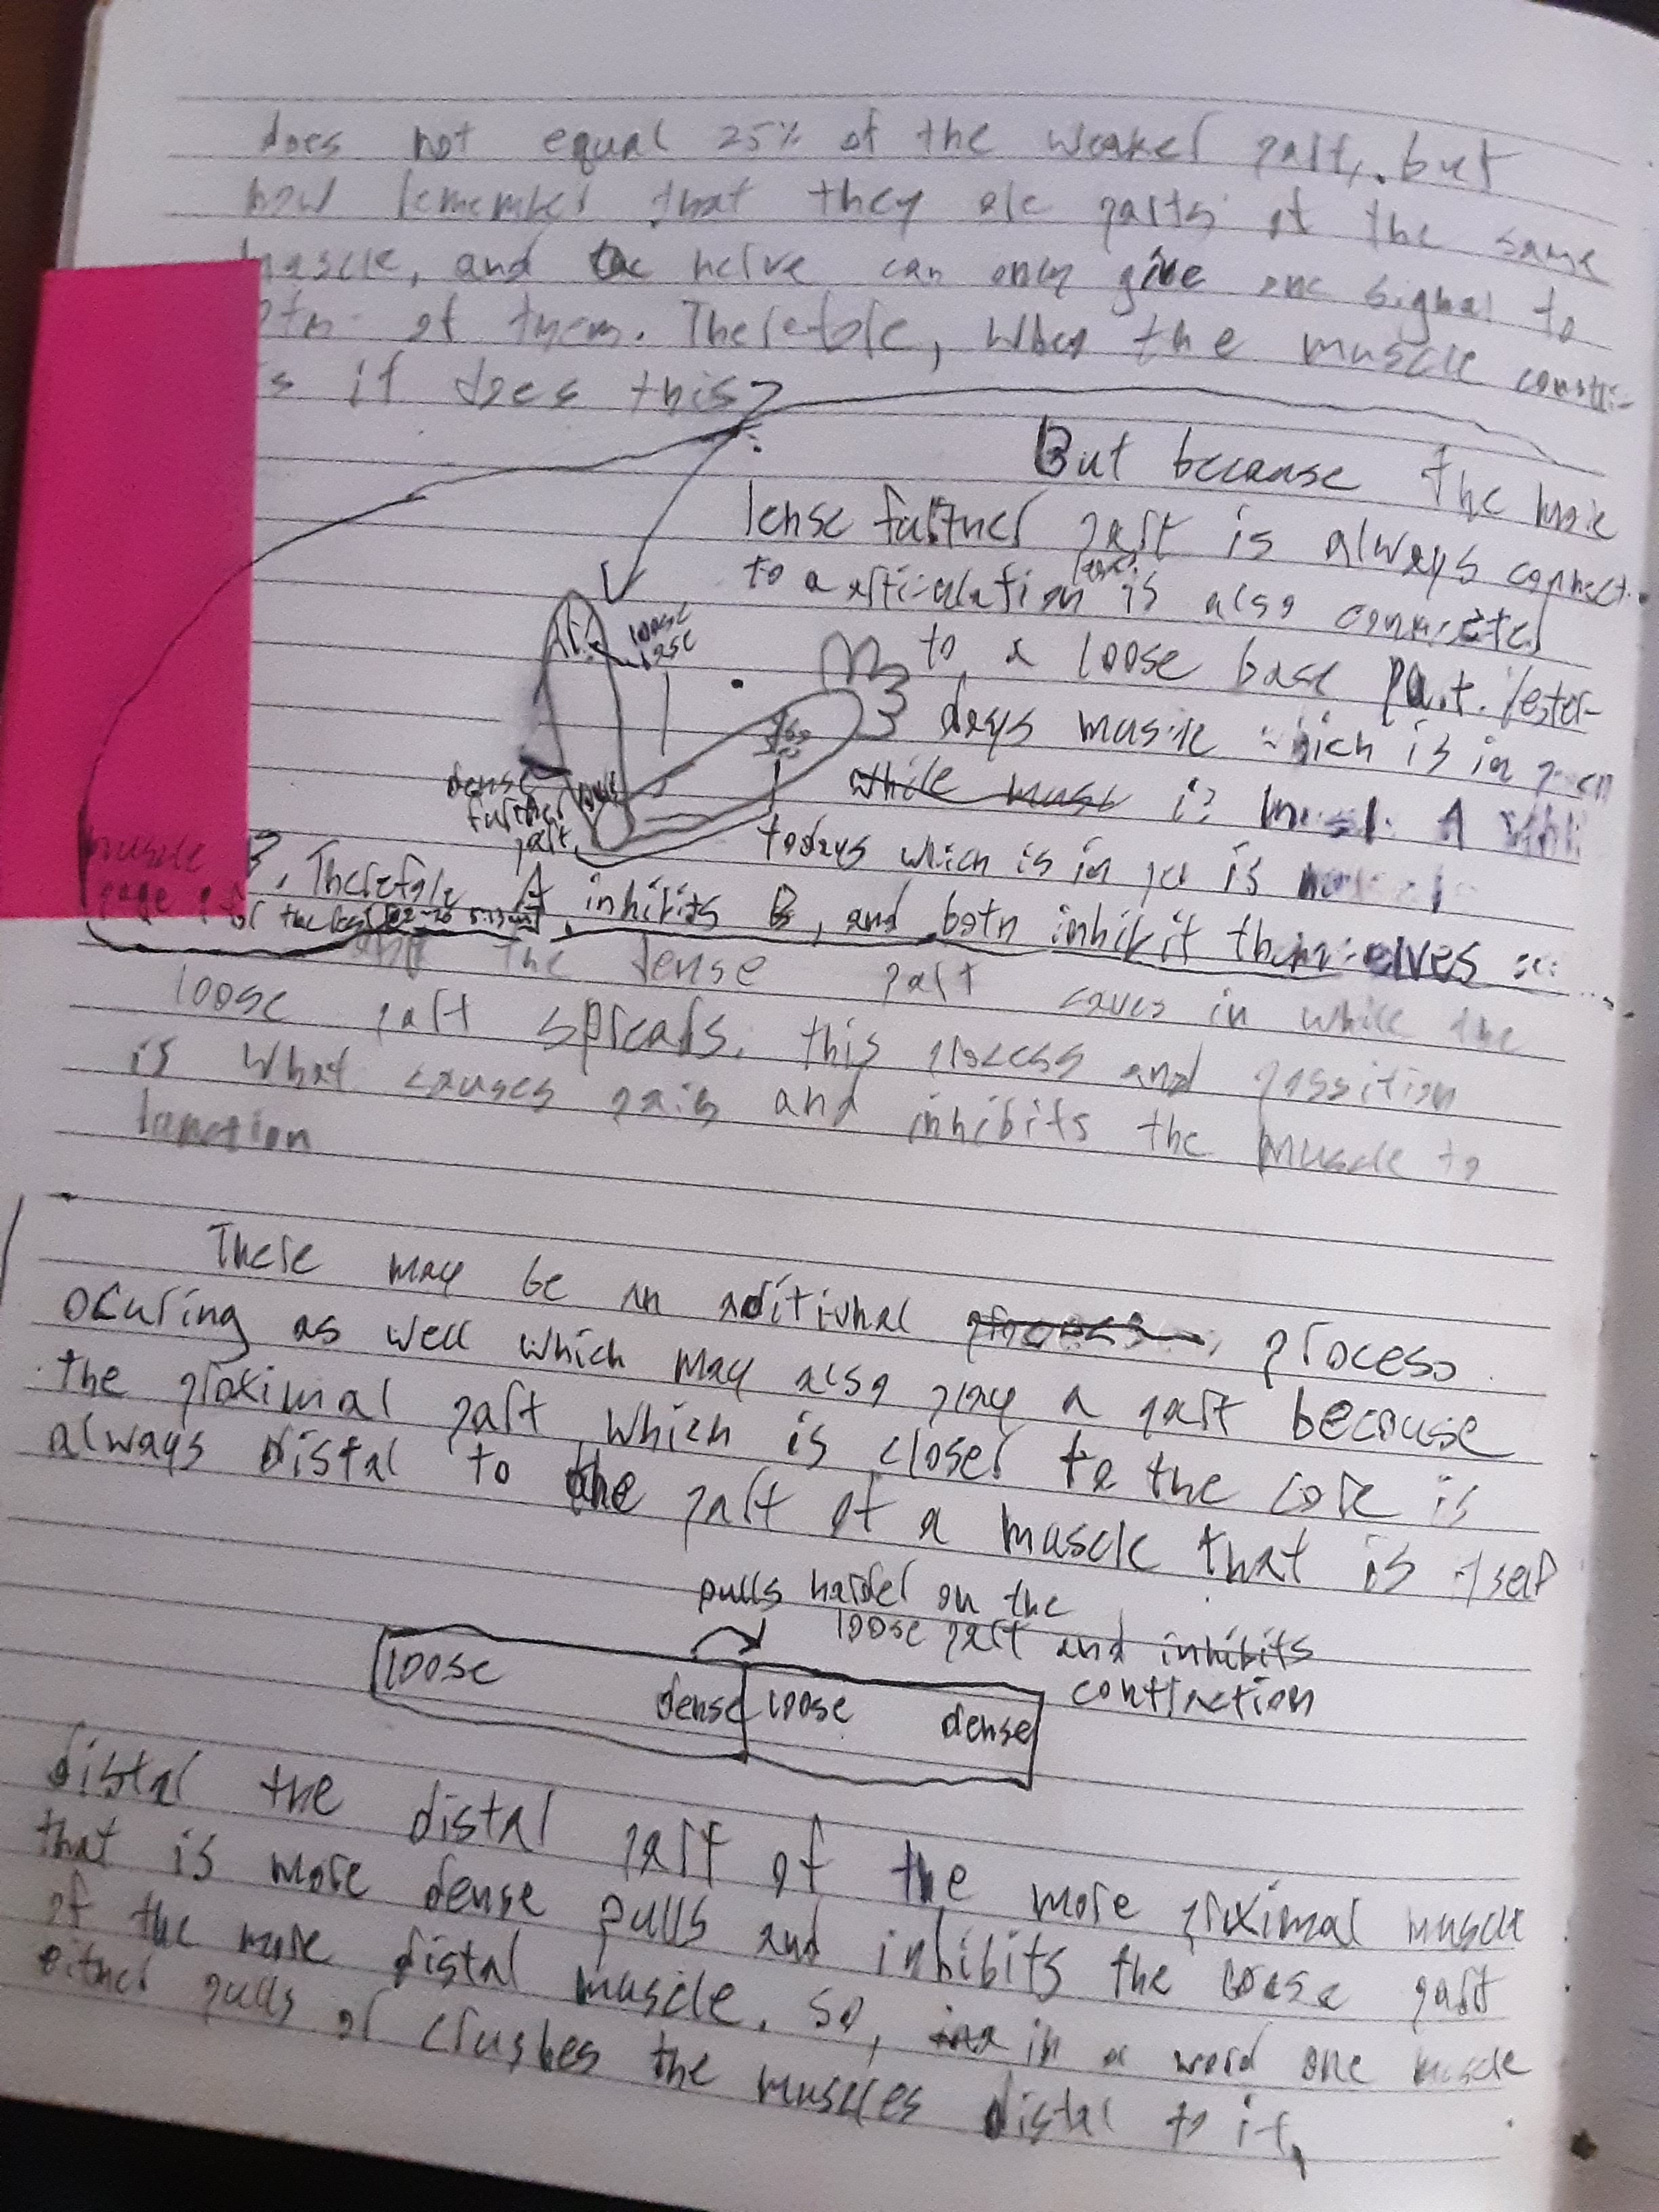 does not equal 25% of the weaker part, but
now remember that they are parts of the same
muscle, and the nerve can only give one signal to
of them. Therefore, when the muscle
it does this?
But because the
dense further part is always connect.
to a articulation is also connected
to a loose base part. Yester-
days muscle which is in
while is A
todays which is in is
loose
base
dense
further
part
muscle
page
for the
Therefore A inhibits B, and both inhibit themselves
the dense part caves in while the
loose part spreads. this process and possition
is what causes pain and inhibits the muscle to
function
There may be an aditional process
ocuring as well which may also play a part because
the proximal part which is closer to the core is
always distal to the part of a muscle that is itself
pulls harder on the
loose part and inhibits
contraction
loose dense loose dense
distal the distal part of the more proximal muscle
that is more dense pulls and inhibits the loose part
of the more distal muscle. so, in a word one muscle
either pulls or crushes the muscles distal to it,